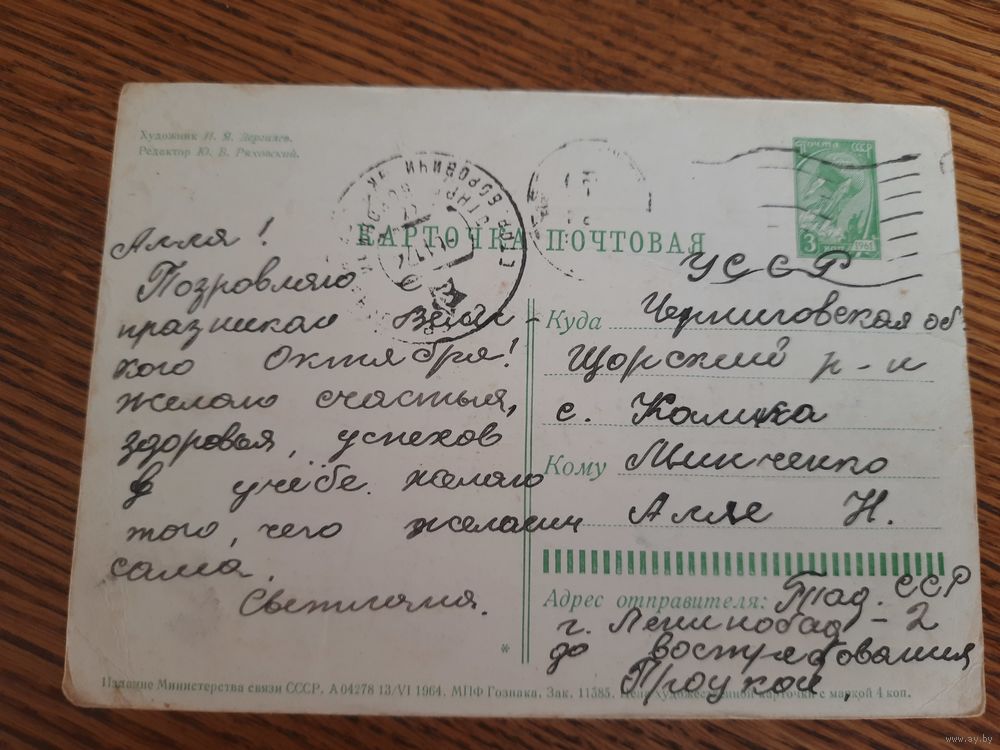 Художник И. Я. Дергилев.
Редактор Ю. В. Ряховский.
ПОЧТА СССР
3
1961
КАРТОЧКА ПОЧТОВАЯ
БОРОВИЧИ
Алля!
Позровляю
празникал Вели-
кого Октября!
желаю счастья,
здоровья, успехов
в учёбе. желаю
того, чего желаеш
сама.
Светлана.
УССР
Куда Черниговская об
Щорский р-н
с. Камка
Кому Минченко
Алле Н.
Адрес отправителя: Тад. ССР
г. Ленинобад-2
до востребования
Троцкой
*
Издание Министерства связи СССР. А 04278 13/VI 1964. МПФ Гознака. Зак. 11385. Цена художественной карточки с маркой 4 коп.
www.ay.by